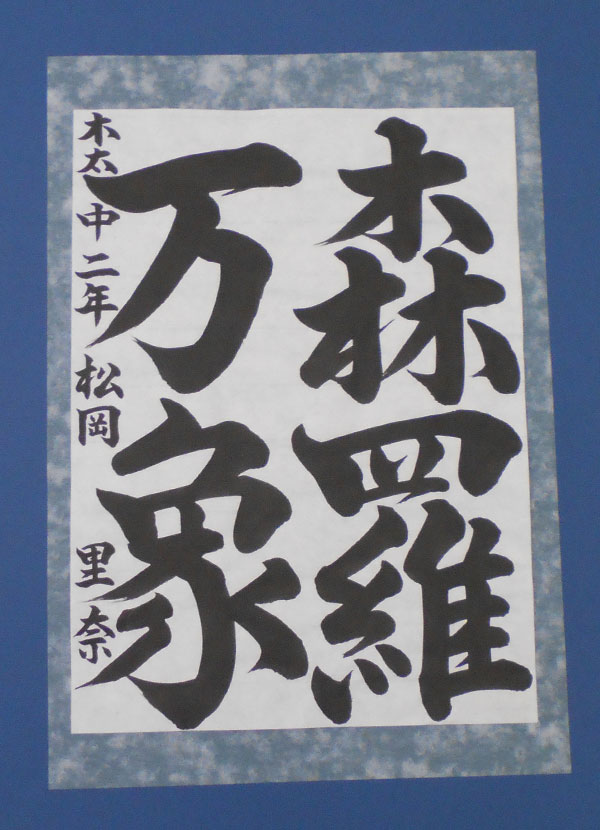 森羅
万象
木太中二年 松岡 里奈